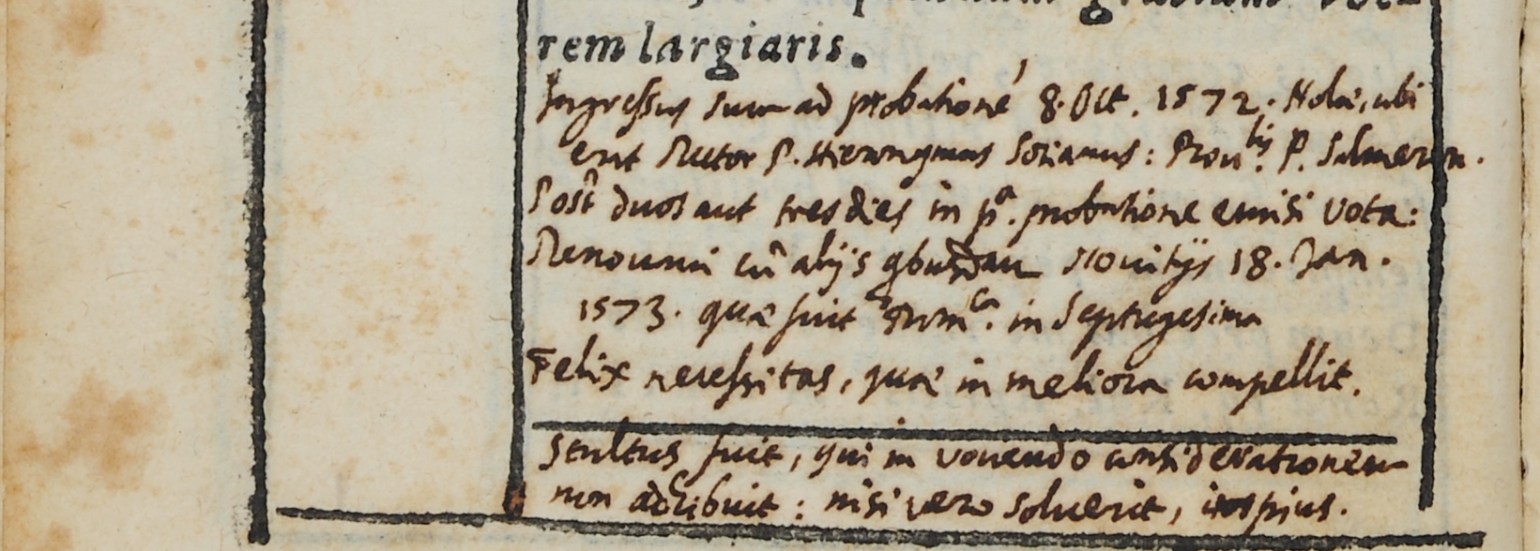 rem largiaris.
Ingressus sum ad probationē 8. Oct. 1572. Nolæ, ubi
erat Rector P. Hieronymus Sorianus: Prou.lis P. Salmeron.
Post duos aut tres dies in pa. probatione emisi vota:
Renouaui cū alijs qbusdam Nouitijs 18. Jan.
1573. quæ fuit Domca. in Septuagesima
Felix necessitas, quæ in meliora compellit.
Stultus fuit, qui in vouendo considerationem
non adhibuit: nisi vero soluerit, impius.